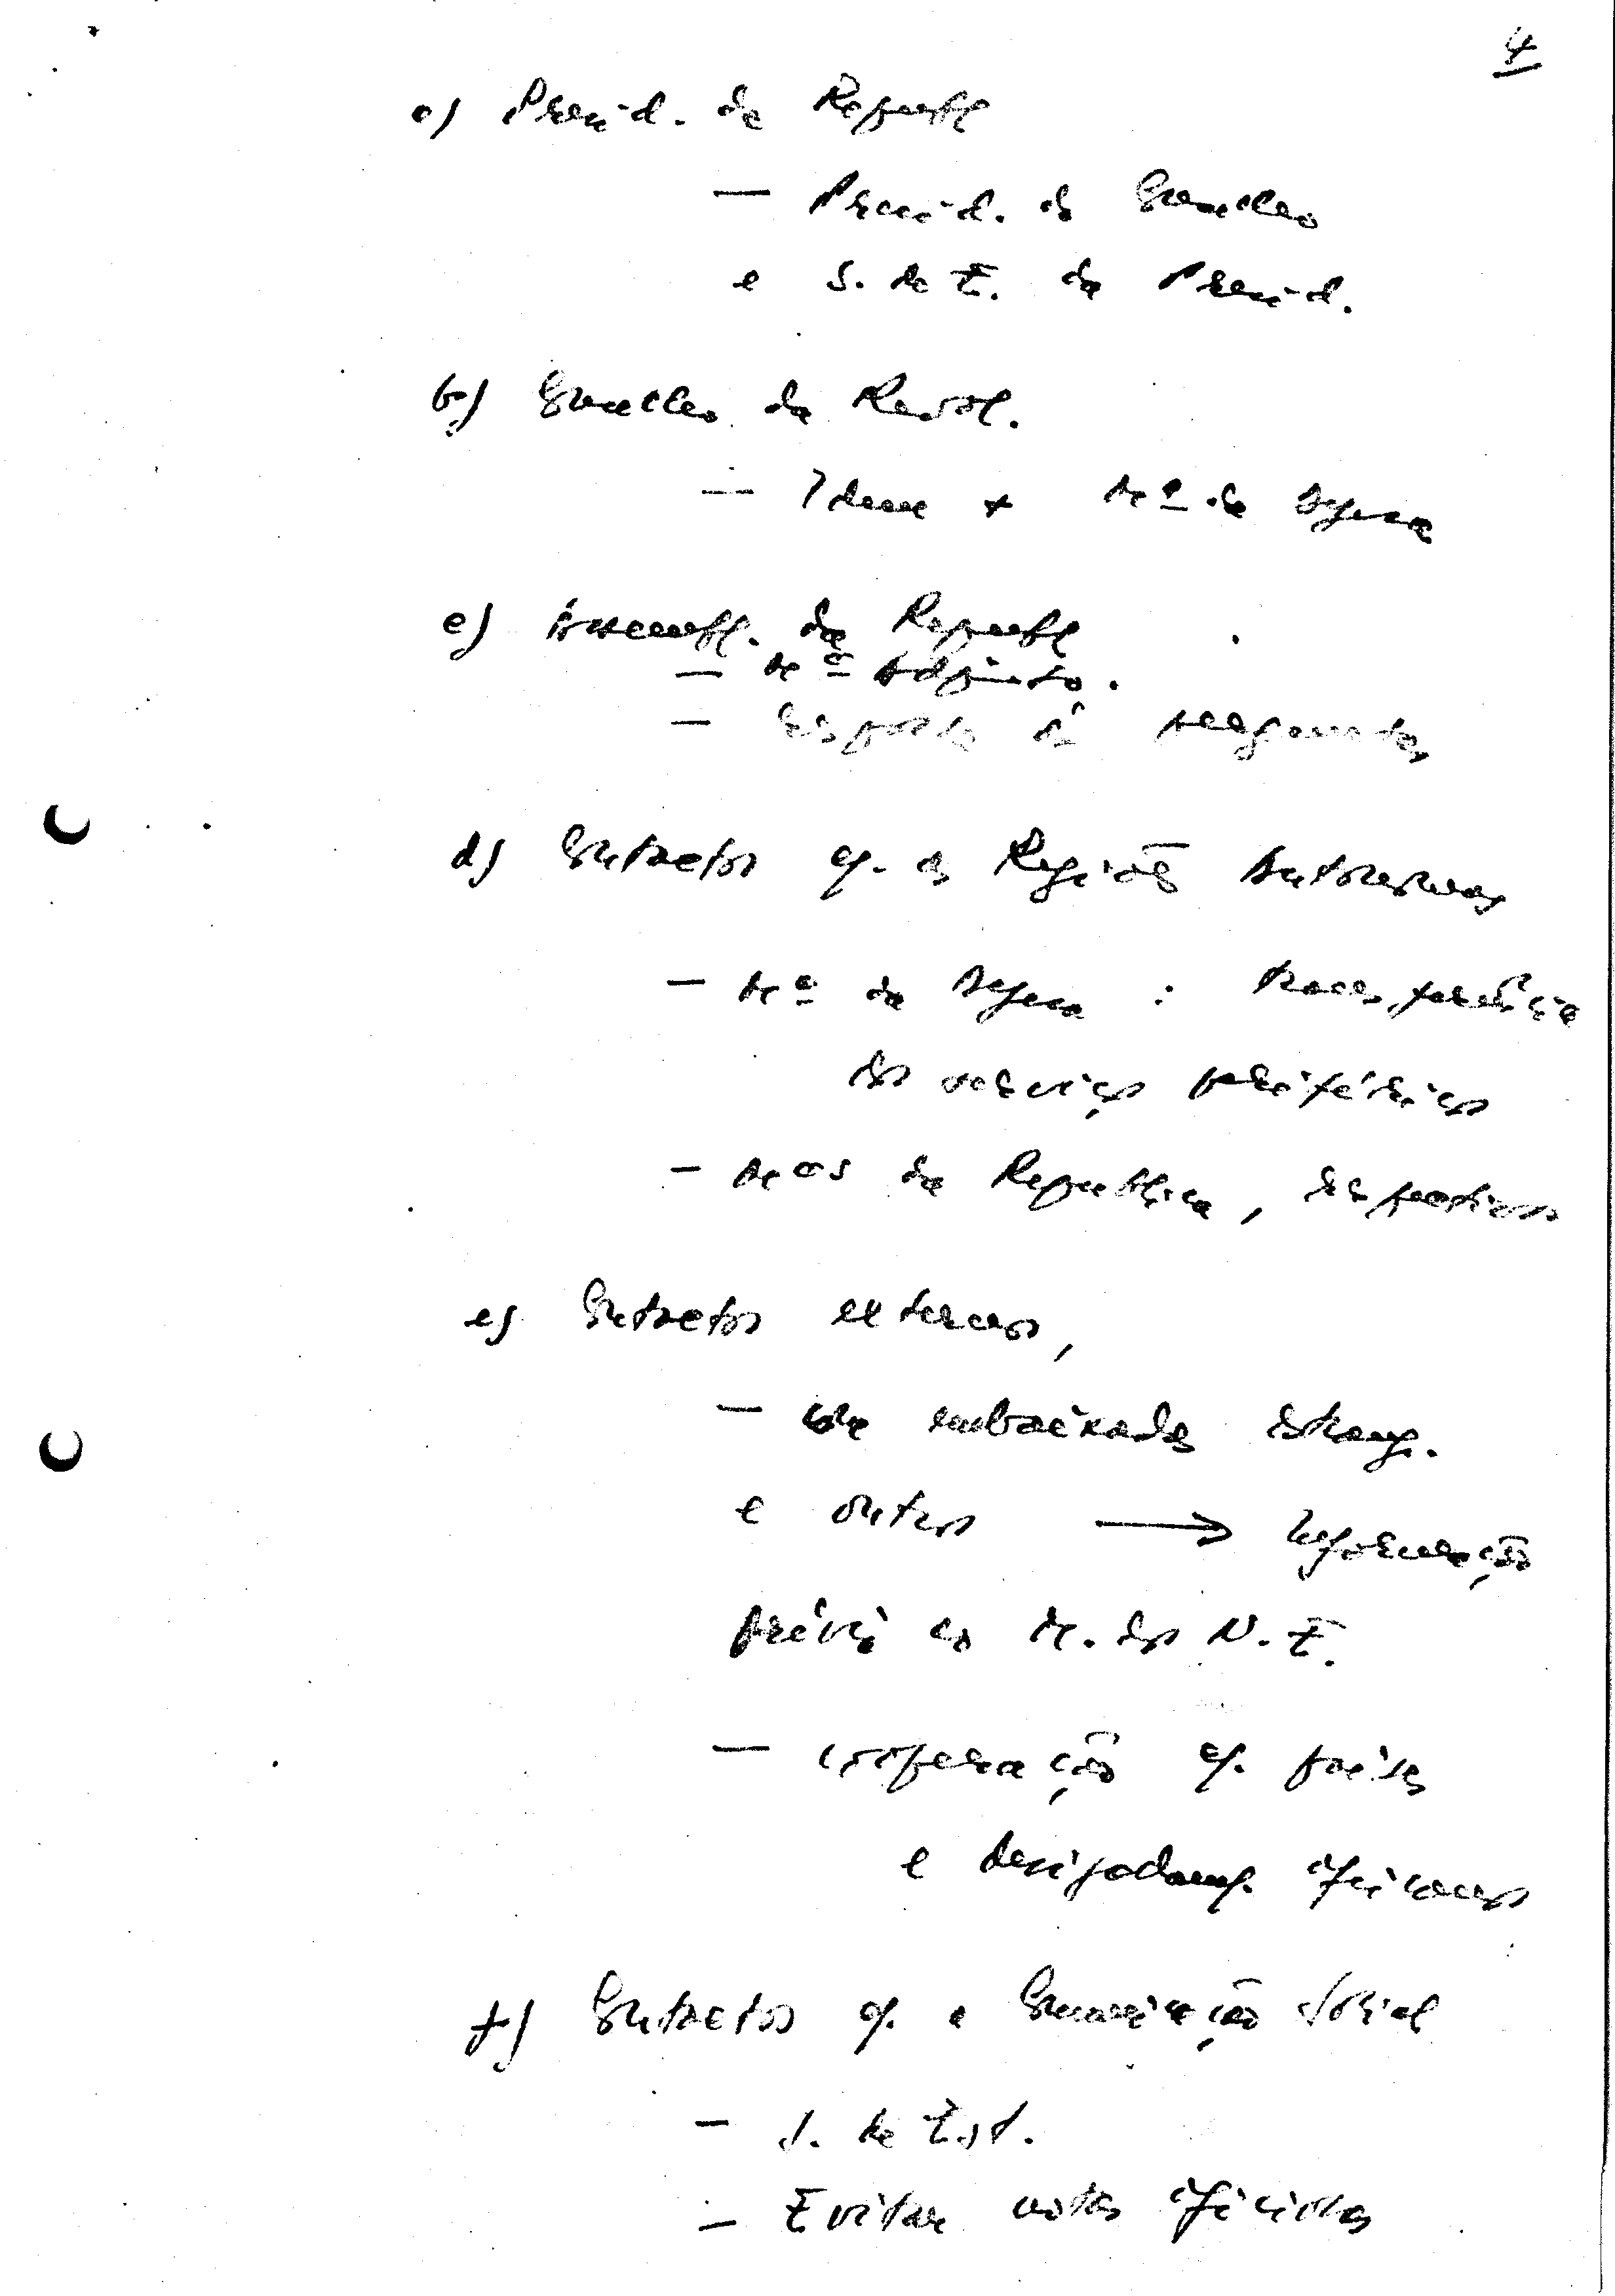 4
a) Presid. da Republ
— Presid. do Conselho
e S. de E. da Presid.
b) Conselho da Revol.
— Idem + Mº da Defesa
c) Assembl. da Republ
— Mº Adjunto.
— Resposta às perguntas
d) Contactos c/. as Regiões Autónomas
— Mº da Defesa : transferência
dos serviços periféricos
— Mºs da República, respectivos
e) Contactos externos,
— com embaixadas estrang.
e outros → Informação
prévia ao M. dos N. E.
— cooperação c/. países
e designadam/. africanos
f) Contactos c/. a Comunicação Social
— S. de Est.
— Evitar notas oficiosas